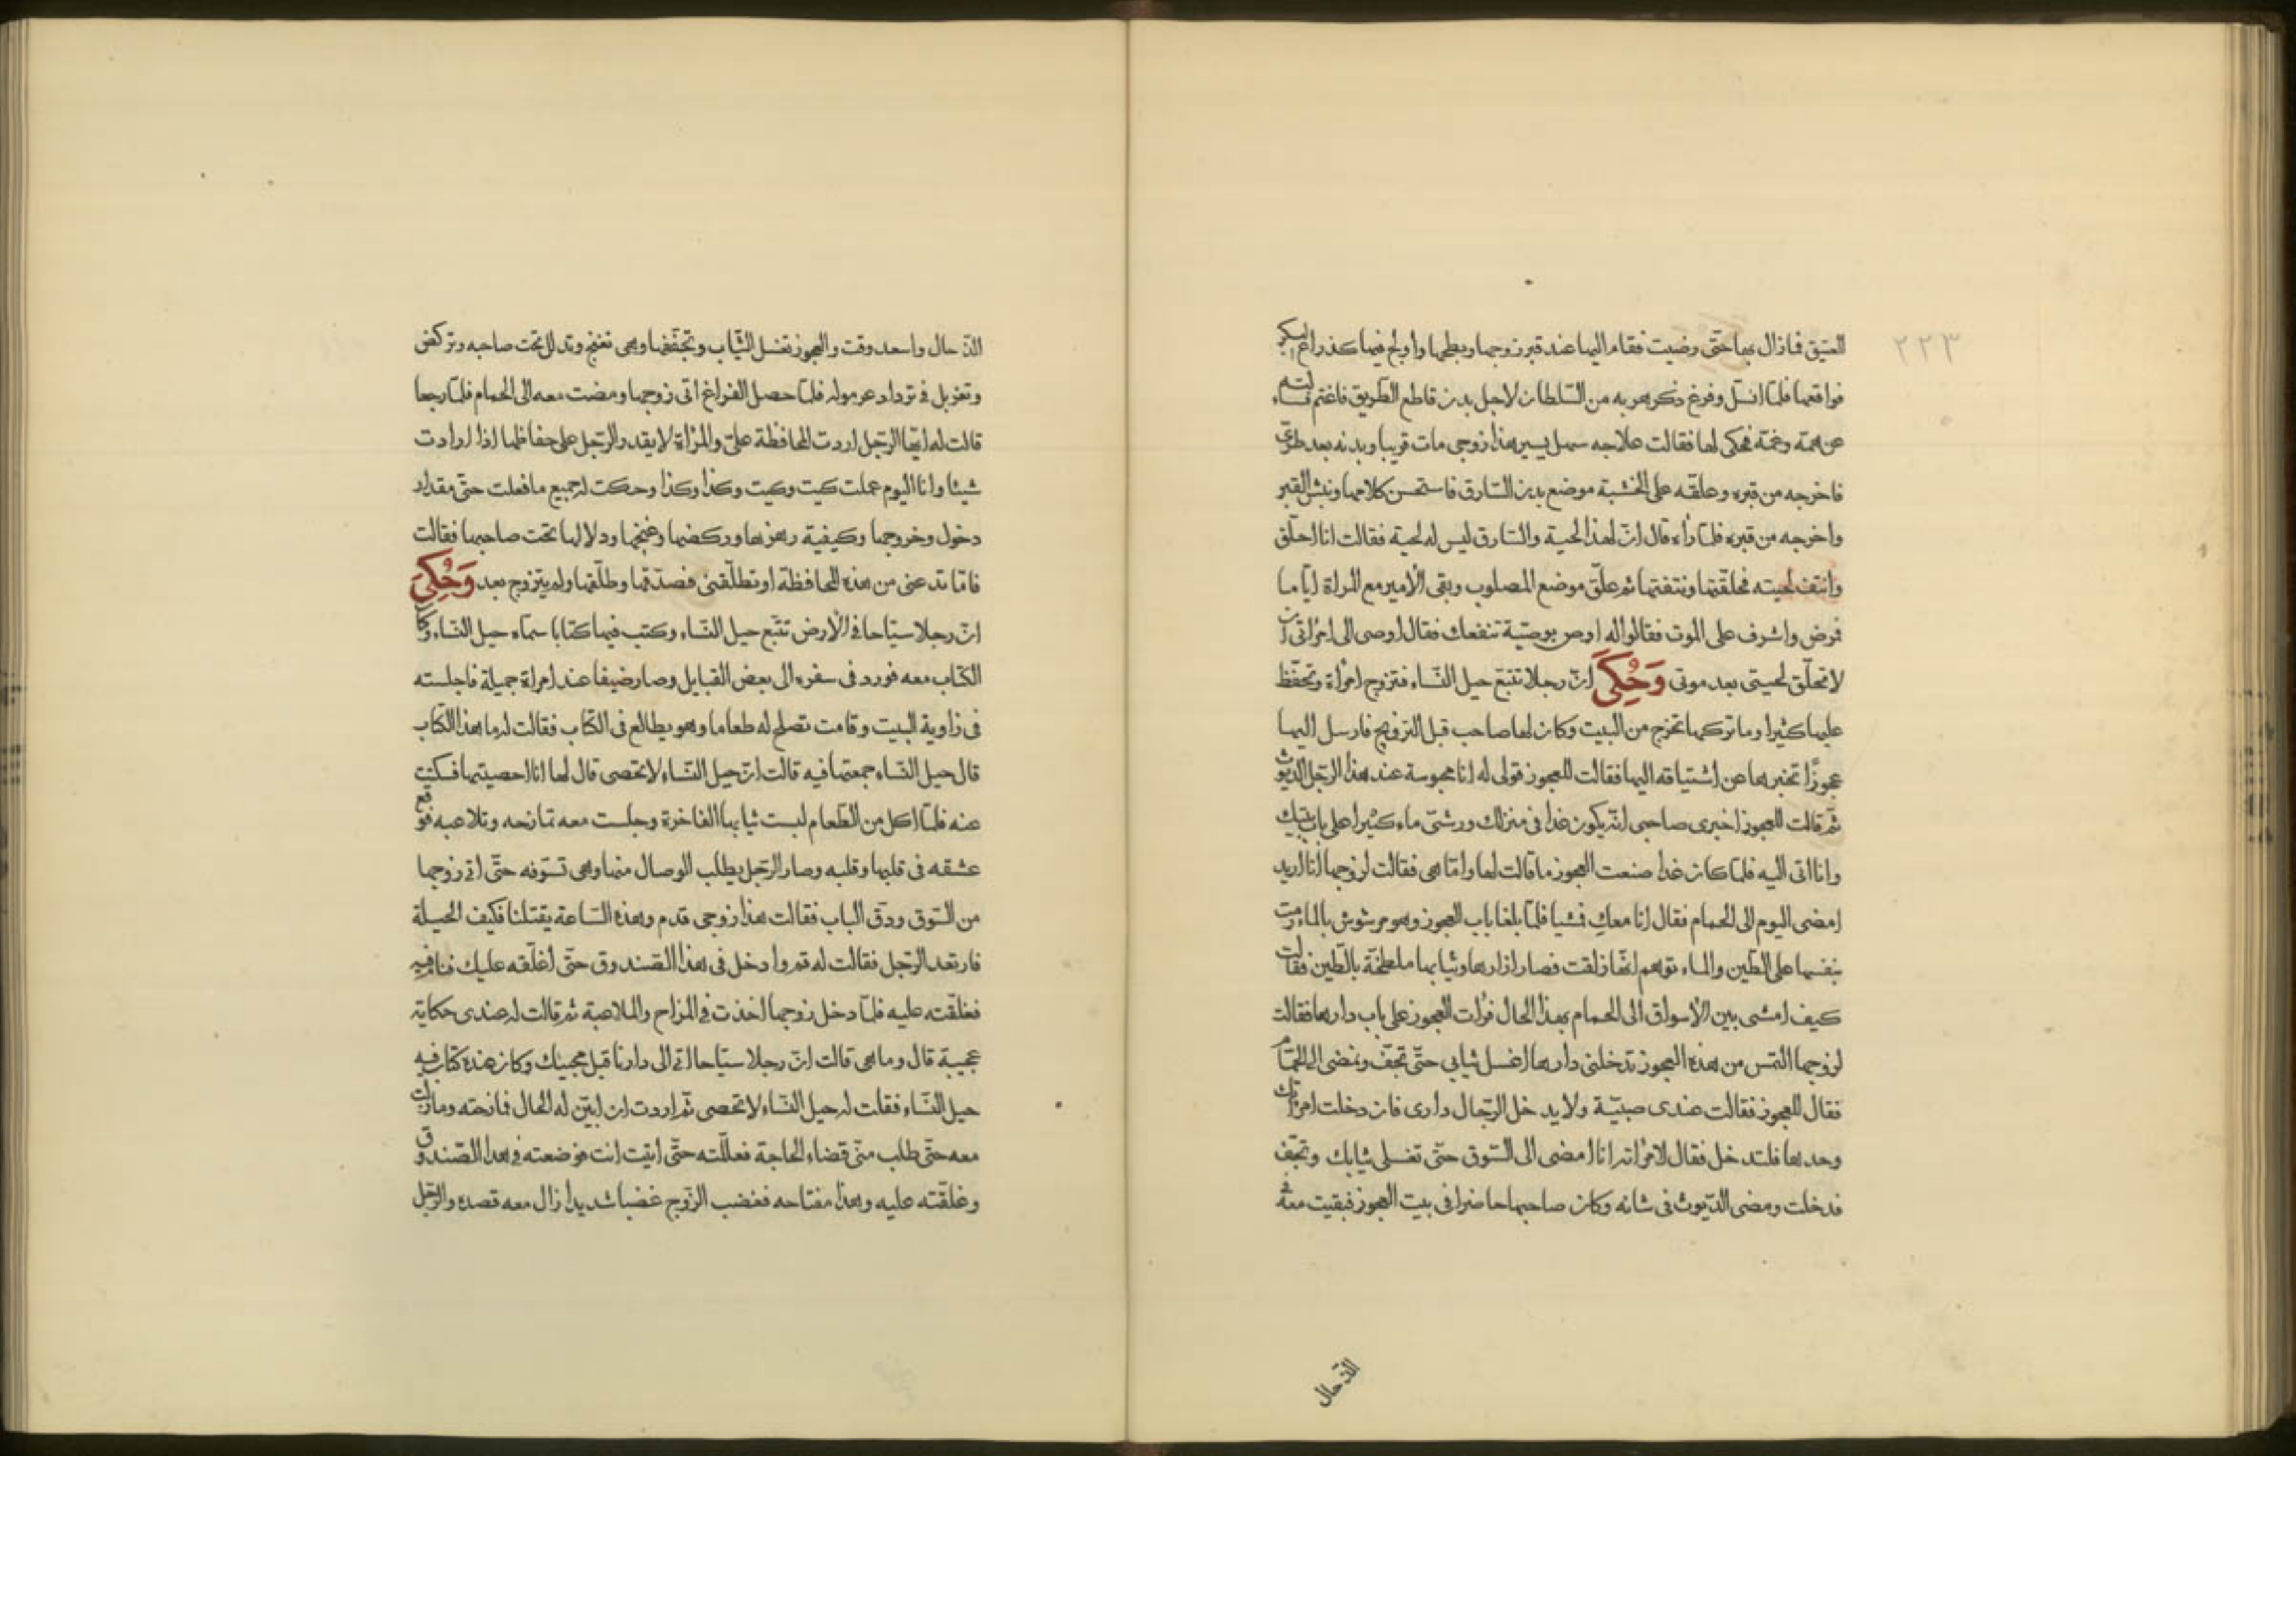 ٢٢٣
العتيق فما زال بها حتّى رضيت فقام اليها عند قبر زوجها وبطحها واولج فيها كذراع البكر
فواقعها فلمّا انسلّ وفرغ ذكر هربه من السّلطان لاجل بدن قاطع الطّريق فاغتم فسالته
عن همّه وغمّه فحكى لها فقالت علاجه سهل يسير هذا زوجى مات قريبا وبدنه بعد طرىّ
فاخرجه من قبره وعلّقه على الخشبة موضع بدن السّارق فاستحسن كلامها ونبش القبر
واخرجه من قبره فلمّا رأه قال انّ لهذا لحية والسّارق ليس له لحية فقالت انا احلّق
وانتف لحيته فحلقتها ونتفتها ثم علّق موضع المصلوب وبقى الأمير مع المراة ايّاما
فمرض واشرف على الموت فقالوا له اوص بوصيّة تنفعك فقال اوصى الى امراتى ان
لا تحلّق لحيتى بعد موتى وَحُكِىَ انّ رجلا تتبّع حيل النّساء فتزوج امراة وتحفّظ
عليها كثيرا وما تركها تخرج من البيت وكان لها صاحب قبل التزويج فارسل اليها
عجوزًا تخبرها عن اشتياقه اليها فقالت للعجوز قولى له انا محبوسة عند هذا الرّجل الديّوث
ثمّ قالت للعجوز اخبرى صاحبى انّه يكون غدا فى منزلك ورشّى ماء كثيرا على باب بيتك
وانا اتى اليه فلمّا كان غدا صنعت العجوز ما قالت لها وامّا هى فقالت لزوجها انا اريد
امضى اليوم الى الحمام فقال انا معك فمشيا فلمّا بلغا باب العجوز وهو مرشوش بالماء رمت
بنفسها على الطّين والماء توهم انّها زلقت فصار ازارها وثيابها ملطخّة بالطّين فقالت
كيف امشى بين الأسواق الى الحمام بهذا الحال فرأت العجوز على باب دارها فقالت
لزوجها التمس من هذه العجوز تدخلنى دارها اغسل ثيابى حتّى تجفّ ونمضى الى الحمّام
فقال للعجوز فقالت عندى صبيّة ولا يدخل الرّجال دارى فان دخلت امراتك
وحدها فلتدخل فقال لامراته انا امضى الى السّوق حتّى تغسلى ثيابك وتجفّ
فدخلت ومضى الدّيوث فى شانه وكان صاحبها حاضرا فى بيت العجوز فبقيت معه فى
الذّ حال
الذّ حال واسعد وقت والعجوز تغسل الثّياب وتجفّفها وهى تغنج وتدلل تحت صاحبه وتركض
وتغربل فى ترداد عرموله فلمّا حصل الفراغ اتى زوجها ومضت معه الى الحمام فلمّا رجعا
قالت له ايّها الرّجل اردت المحافظة علىّ والمراة لا يقدر الرّجل على حفاظها اذا ارادت
شيئا وانا اليوم عملت كيت وكيت وكذا وكذا وحكت له جميع ما فعلت حتّى مقدار
دخول وخروجها وكيفية رهزها وركضها وغنجها ودلالها تحت صاحبها فقالت
فامّا تدعنى من هذه المحافظة او تطلّقنى فصدّقها وطلّقها ولم يتزوج بعد وَحُكِىَ
انّ رجلا سيّاحا فى الأرض تتبّع حيل النّساء وكتب فيها كتابا سمّاه حيل النّساء وكان
الكتاب معه فورد فى سفره الى بعض القبايل وصار ضيفا عند امراة جميلة فاجلسته
فى زاوية البيت وقامت تصلح له طعاما وهو يطالع فى الكتاب فقالت له ما هذا الكتاب
قال حيل النّساء جمعتها فيه قالت انّ حيل النّساء لا تحصى قال لها انا احصيتها فسكتت
عنه فلمّا اكل من الطّعام لبست ثيابها الفاخرة وجلست معه تمازحه وتلاعبه فوقع
عشقه فى قلبها وقلبه وصار الرّجل يطلب الوصال منها وهى تسوّفه حتّى اتى زوجها
من السّوق ودقّ الباب فقالت هذا زوجى قدم وهذه السّاعة يقتلنا فكيف الحيلة
فارتعد الرّجل فقالت له قم وادخل فى هذا الصّندوق حتّى اغلّقه عليك فنام فيه
فغلّقته عليه فلمّا دخل زوجها اخذت فى المزاح والملاعبة ثم قالت له عندى حكاية
عجيبة قال وما هى قالت انّ رجلا سيّاحا اتى الى دارنا قبل مجيئك وكان عنده كتاب فيه
حيل النّساء فقلت له حيل النّساء لا تحصى ثمّ اردت ان ابيّن له الحال فمازحته ومازلت
معه حتّى طلب منّى قضاء الحاجة فعلّلته حتّى اتيت انت فوضعته فى هذا الصّندوق
وغلّقته عليه وهذا مفتاحه فغضب الزّوج غضبا شديدا زال معه قصده والرّجل